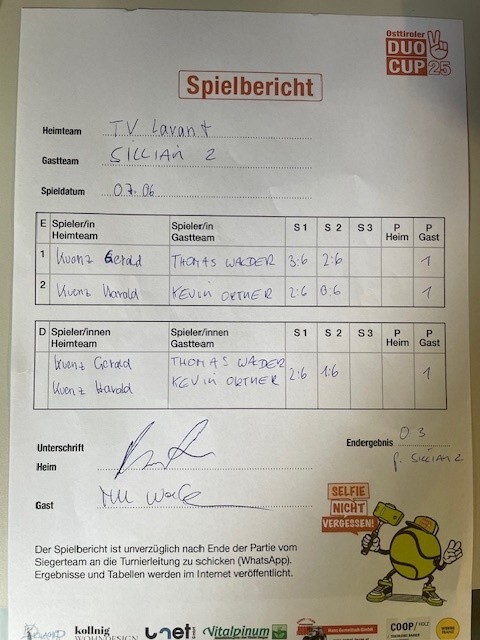 Osttiroler
DUO
CUP 25
Spielbericht
Heimteam TV Lavant
Gastteam SILLIAN 2
Spieldatum 07.06
E Spieler/in Heimteam Spieler/in Gastteam S 1 S 2 S 3 P Heim P Gast
1 Kuenz Gerald THOMAS WALDER 3:6 2:6 1
2 Kuenz Harold KEVIN ORTNER 2:6 0:6 1
D Spieler/innen Heimteam Spieler/innen Gastteam S 1 S 2 S 3 P Heim P Gast
Kuenz Gerald THOMAS WALDER
Kuenz Harold KEVIN ORTNER 2:6 1:6 1
Unterschrift
Heim
Endergebnis 0 3
f. SILLIAN 2
Gast
SELFIE
NICHT
VERGESSEN!
Der Spielbericht ist unverzüglich nach Ende der Partie vom
Siegerteam an die Turnierleitung zu schicken (WhatsApp).
Ergebnisse und Tabellen werden im Internet veröffentlicht.
kollnig WOHNDESIGN unet Vitalpinum COOP/